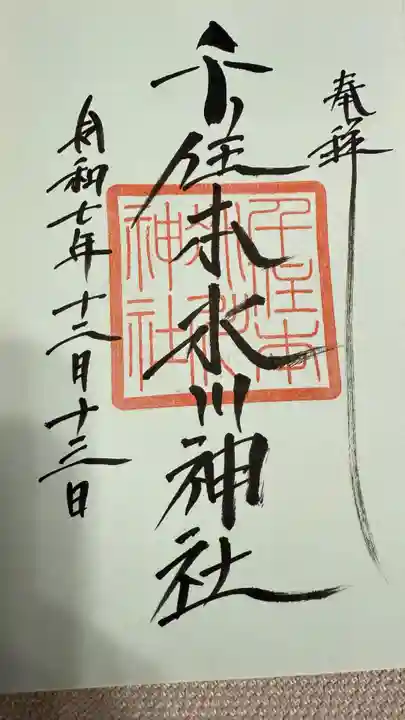 奉拝
千住本氷川神社
千住本氷川神社
令和七年十二月十三日